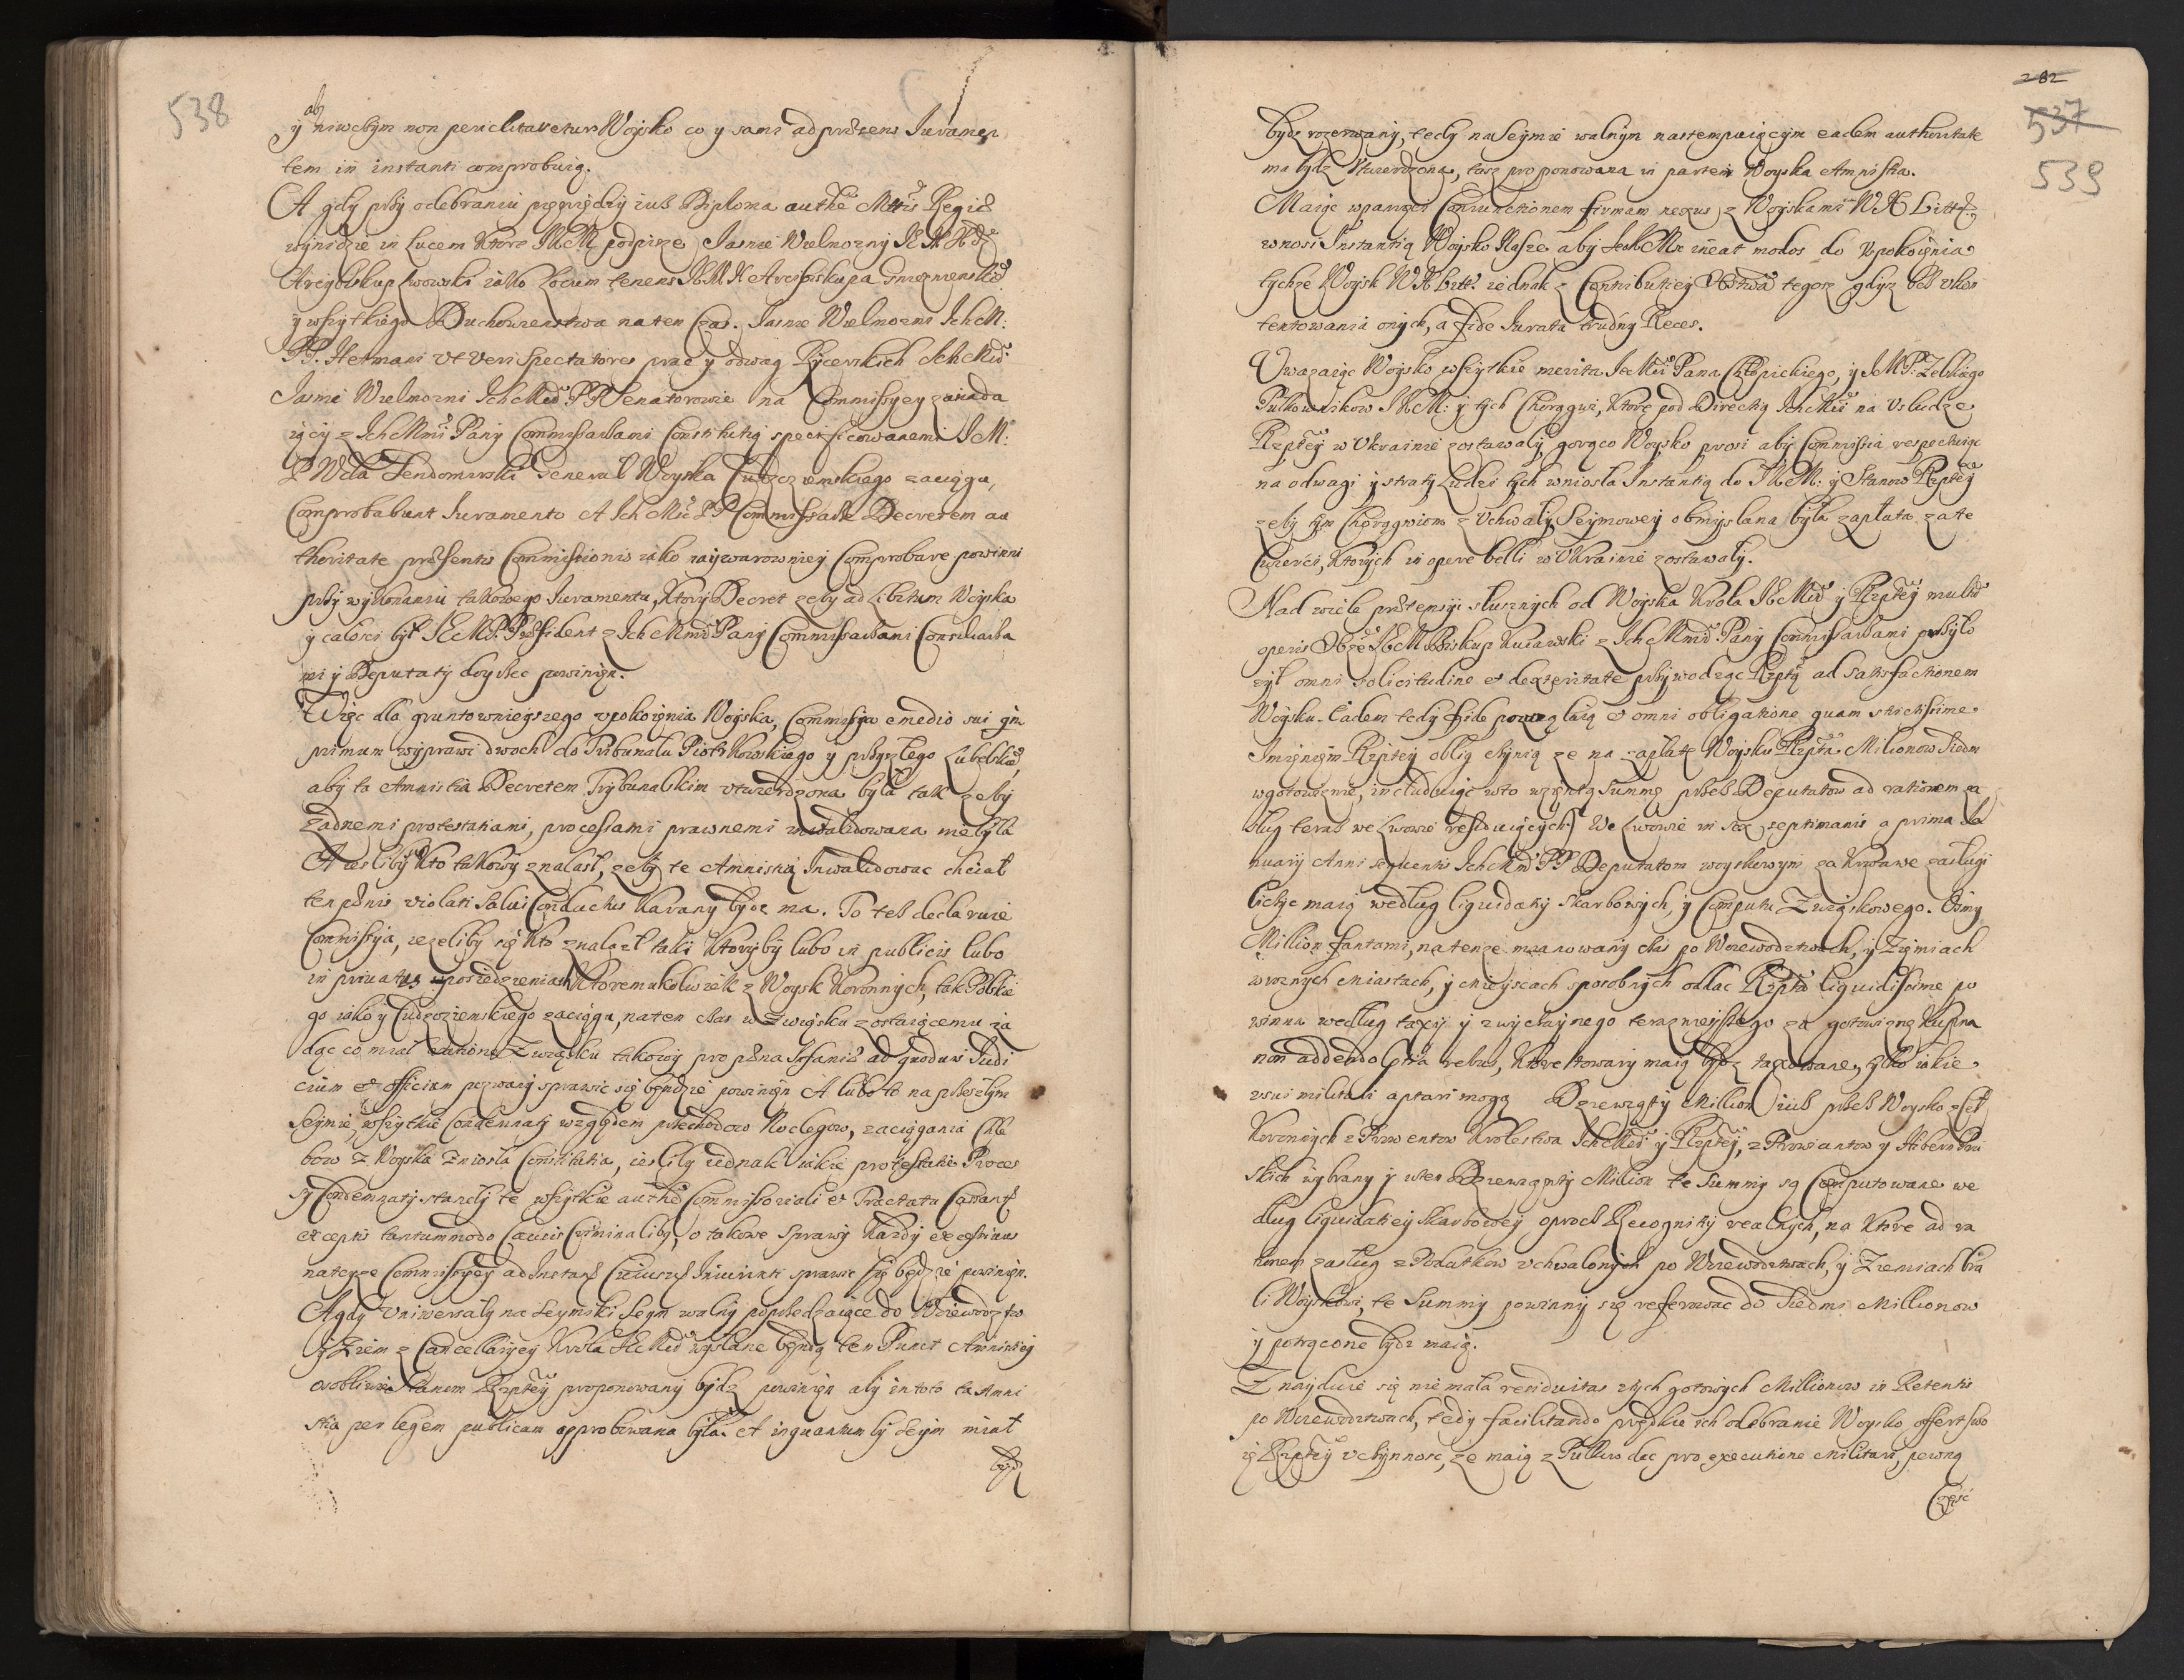 538
ab
y niwcbym non periclitaretur Woysko co y sami ad præsens Iuramen
tem in instanti comprobuią.
A gdy przy odebraniu pieniędzy iuż Diploma authe Mttis Regiæ
wynidzie in lucem ktore JKM podpisze Jasnie Wielmozny JE X Xdz
Arcybiskup Lwowski iako Locum tenens JEM X Arcybiskupa Gnieznienskie°
y wszytkiego Duchowienstwa na ten czas. Jasnie Wielmozni IchM:
PP. Hetmani vt veri Spectatores prac y odwag Rycerskich IchMc
Jasnie Wielmozni IchMc PP Senatorowie na Commissyey zasiada
iący z IchMmi Pany Commissarzami Constitutią specificowanemi J M:
P Wda Sendomirski Generał Woyska Cudzoziemskiego zaciągu,
Comprobabunt Iuramento A IchMc PP Commissarze Decretem au
thoritate præsentis Commissionis iako naywarowniey Comprobare powinni
przy wykonaniu takowego Iuramentu, Ktory Decret zeby ad libitum Woyska
y całosci był JEMP. Præsident z IchMmi Pany Commissarzami Consiliarza
mi y Deputaty doyśc powinien.
Więc dla gruntownieyszego vpokoienia Woyska, Commissya e medio sui quam
primum wyprawi dwoch do Tribunału Piotrkowskiego y przyszłego Lubelskie°,
aby ta Amnistia Decretem Trybunalskim vtwierdzona była tak zeby
zadnemi protestatiami, processami prawnemi inwalidowana nie była
A iesliby kto takowy znalazł, zeby te Amnistią Inwalidowac chciał
ten pænis violati Salui Conductus karany bydz ma. To tez declaruie
Commissya, iezeliby się kto znalazł taki ktoryby lubo in publicis lubo
in priuatis w posiedzeniach ktoremukolwiek z Woysk Koronnych, tak Polskie
go iako y Cudzoziemskiego zaciągu, na ten czas w Związku zostaiącemu za
dac co miał ratione Związku takowy pro pæna Infamiæ ad quoduis Iudi
cium et officium pozwany sprawic się będzie powinien A lubo to na przeszłym
Seymie, wszytkie Condemnaty względem przechodow Noclegow, zaciągania Chle
bow z Woyska zniosła Constitutia, iesliby iednak iakie protestatie Proces
sy Condemnaty stanęły te wszytkie authe Commissoriali et Tractatu Cassant
exceptis tantummodo Causis Criminalibg, o takowe sprawy kazdy excessiuus
na teyze Commissyey ad Instant Cuiusuis Iniuriati sprawic się będzie powinien.
A gdy Vniwersały na Seymiki Seym walny poprzedzaiące do Woiewodztw
y Ziem z Cancellaryey Krola JEMci wysłane będą ten Punct Amnistiey
osobliwie Stanom Rzptey proponowany bydz powinien aby in toto ta Amni
stia per legem publicam approbowana była. Et inquantum by Seym miał
bydz
282
537
539
bydz rozerwany, tedy na Seymie walnym nastempuiącym eadem authoritate
ma bydz vtwierdzona, tosz proponowana in partem Woyska Amnistia.
Maiąc wparzes Coniunctionem firmam nexus z Woyskami W X Litt:
wnosi Instantią Woysko Nasze aby JeKMc ineat modos do Vpokoięnia
tychze Woysk W X Litt: iednak z Contributiey Xstwa tegosz gdyz bez vkon
tentowania onych, a fide Iurata trudny Reces.
Vwazaiąc Woysko wszytkie merita JeMci Pana Chłopickiego, y JMP. Zelskiego
Pułkownikow JKM: y tych Chorągwi, ktore pod Directią IchMci na Vsłudze
Rzptey w Vkrainie zostawały, gorąco Woysko prosi aby Commissia respectuiąc
na odwagi y straty ludzi tych wniosła Instantią do JKM: y Stanow Rzptey
zeby tym Chorągwiom z Vchwały Seymowey obmyslana była zapłata za te
Cwierci, ktorych in opere belli w Vkrainie zostawały.
Nad wiele prætensyi słusznych od Woyska Krola JEMci y Rzptey multu
operis Xdz JEM Biskup Kuiawski z IchMmi Pany Commissarzami przyło
zył omni solicitudine et dexteritate przywodząc Rzptą ad satisfactionem
Woysku. Eadem tedy fide powagą et omni obligatione quam strictissime
Imieniem Rzptey oblig czynią ze na zapłatę Woysku Rzpta Milionow Siedm
w gotowiznie, includuiąc w to wziętą Summę przez Deputatow ad rationem za
sług teraz we Lwowie residuiących) We Lwowie in sex septimanis a prima Ia
nuarij Anni sequentis IchMm PP Deputatom woyskowym za krwawe zasługi
liczyc maią według liquidatiy Skarbowych, y Computu Związkowego. Osmy
Million fantami, na tenze mianowany czas po Woiewodztwach, y Ziemiach
w roznych Miastach, y mieyscach sposobnych oddac Rzpta liquidissime po
winna według taxy y zwyczaynego terazneyszego za gotowiznę kupna
non addendo Ptia rebus, ktore towary maią bydz taxowane, tylko iakie
vsui militari aptari mogą Dziewiąty Million iuż przez Woysko z Ceł
Koronnych z Prowentow Krolestwa IchMci y Rzptey, z Prowiantow y Hibern Pru
skich wybrany y wten Dziewięnty Milion te Summy są Computowane we
dług liquidatiey Skarbowey oprocz Recognitiy realnych, na ktore ad ra
tionem zasług z Podatkow vchwalonych po Woiewodztwach, y Ziemiach bra
li Woyskowi, te Summy powinny się referowac do Siedmi Millionow
y potrącone bydz maią.
Znayduie się nie mała residuitas tych gotowych Millionow in Retentis
po Woiewodztwach, tedy facilitando prędkie ich odebranie Woysko offert swo
ię Rzptey vczynnosc, ze maią z Pułkow dac pro executione militari, pewną
Częsć